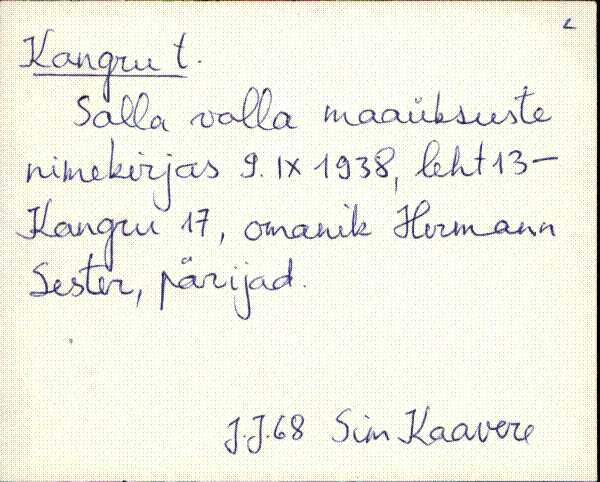 Kangru t.
Salla valla maaüksuste
nimekirjas 9. IX 1938, leht 13 –
Kangru 17, omanik Hermann
Sester, pärijad.
J.J.68 Sim Kaavere